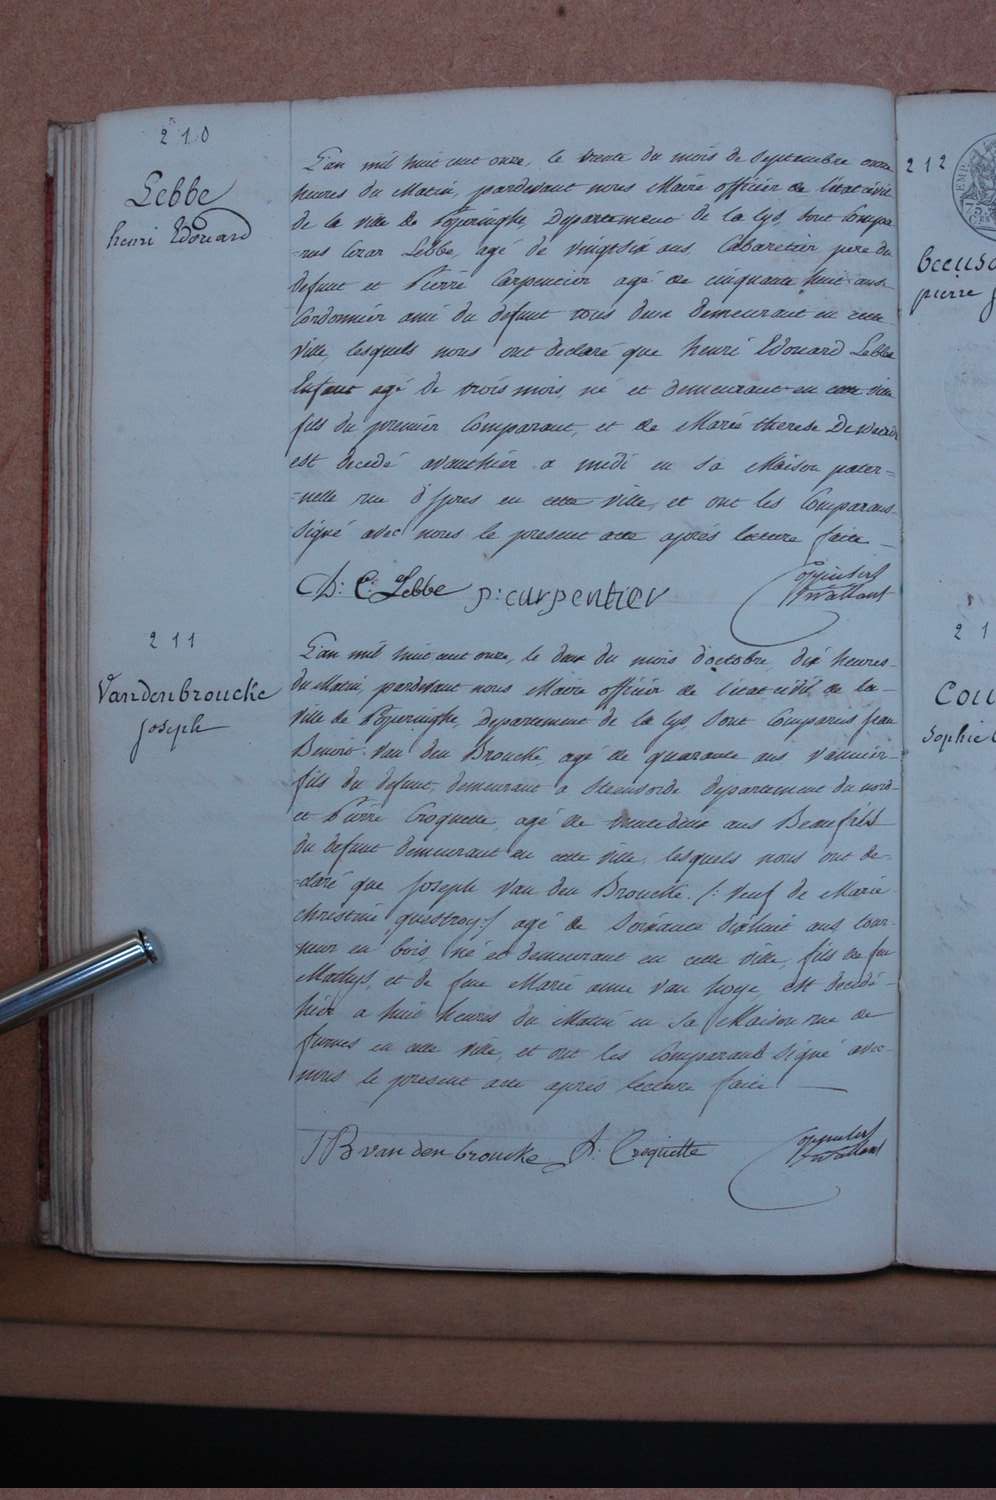 210
Lebbe
henri Edouard
L'an mil huit cent onze, le trente du mois de Septembre onze
heures du Matin, pardevant nous Maire officier de l'etat civil
de la ville de Poperinghe, Departement de la Lys, sont Compa
=rus Lebbe, agé de vingt six ans, Cabaretier, pere du
defunt et Pierre Carpentier agé de cinquante huit ans
Cordonnier ami du defunt tous deux demeurant en cette
ville, lesquels nous ont declaré que henri Edouard Lebbe
Enfant agé de trois mois, né et demeurant en cette ville
fils du premier Comparant, et de Marie therese
est decedé avanthier a midi en sa Maison pater=
=nelle rue d'Ypres en cette ville, et ont les Comparans
signé avec nous le present acte après lecture faite
Lebbe p: carpentier
211
Vandenbroucke
Joseph
L'an mil huit cent onze, le deux du mois d'octobre, dix heures
du Matin, pardevant nous Maire officier de l'etat civil, de la
ville de Poperinghe, Departement de la Lys, sont Comparus Jean
Benoit Van den Broucke, agé de quarante ans vannier
fils du defunt, demeurant a Steenvorde departement du nord
et Pierre Croquette, agé de trente deux ans Beaufils
du defunt demeurant en cette ville, lesquels nous ont de-
-claré que Joseph Van den Broucke /: veuf de Marie
christine :/ agé de soixante dixhuit ans tour-
neur en bois, né et demeurant en cette ville, fils de feu
Mathys, et de feue Marie anne van hoye, est decedé
hier a huit heures du Matin en sa Maison rue de
furnes en cette ville, et ont les Comparans signé avec
nous le present acte après lecture faite
JB van den broucke
212
pierre
21
Sophie